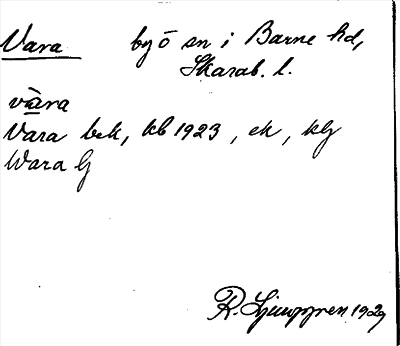 Vara byö sn i Barne hd,
Skarab. l.
vàra
Vara bek, kb 1923, ek, klj
Wara G
R. Ljunggren 1929